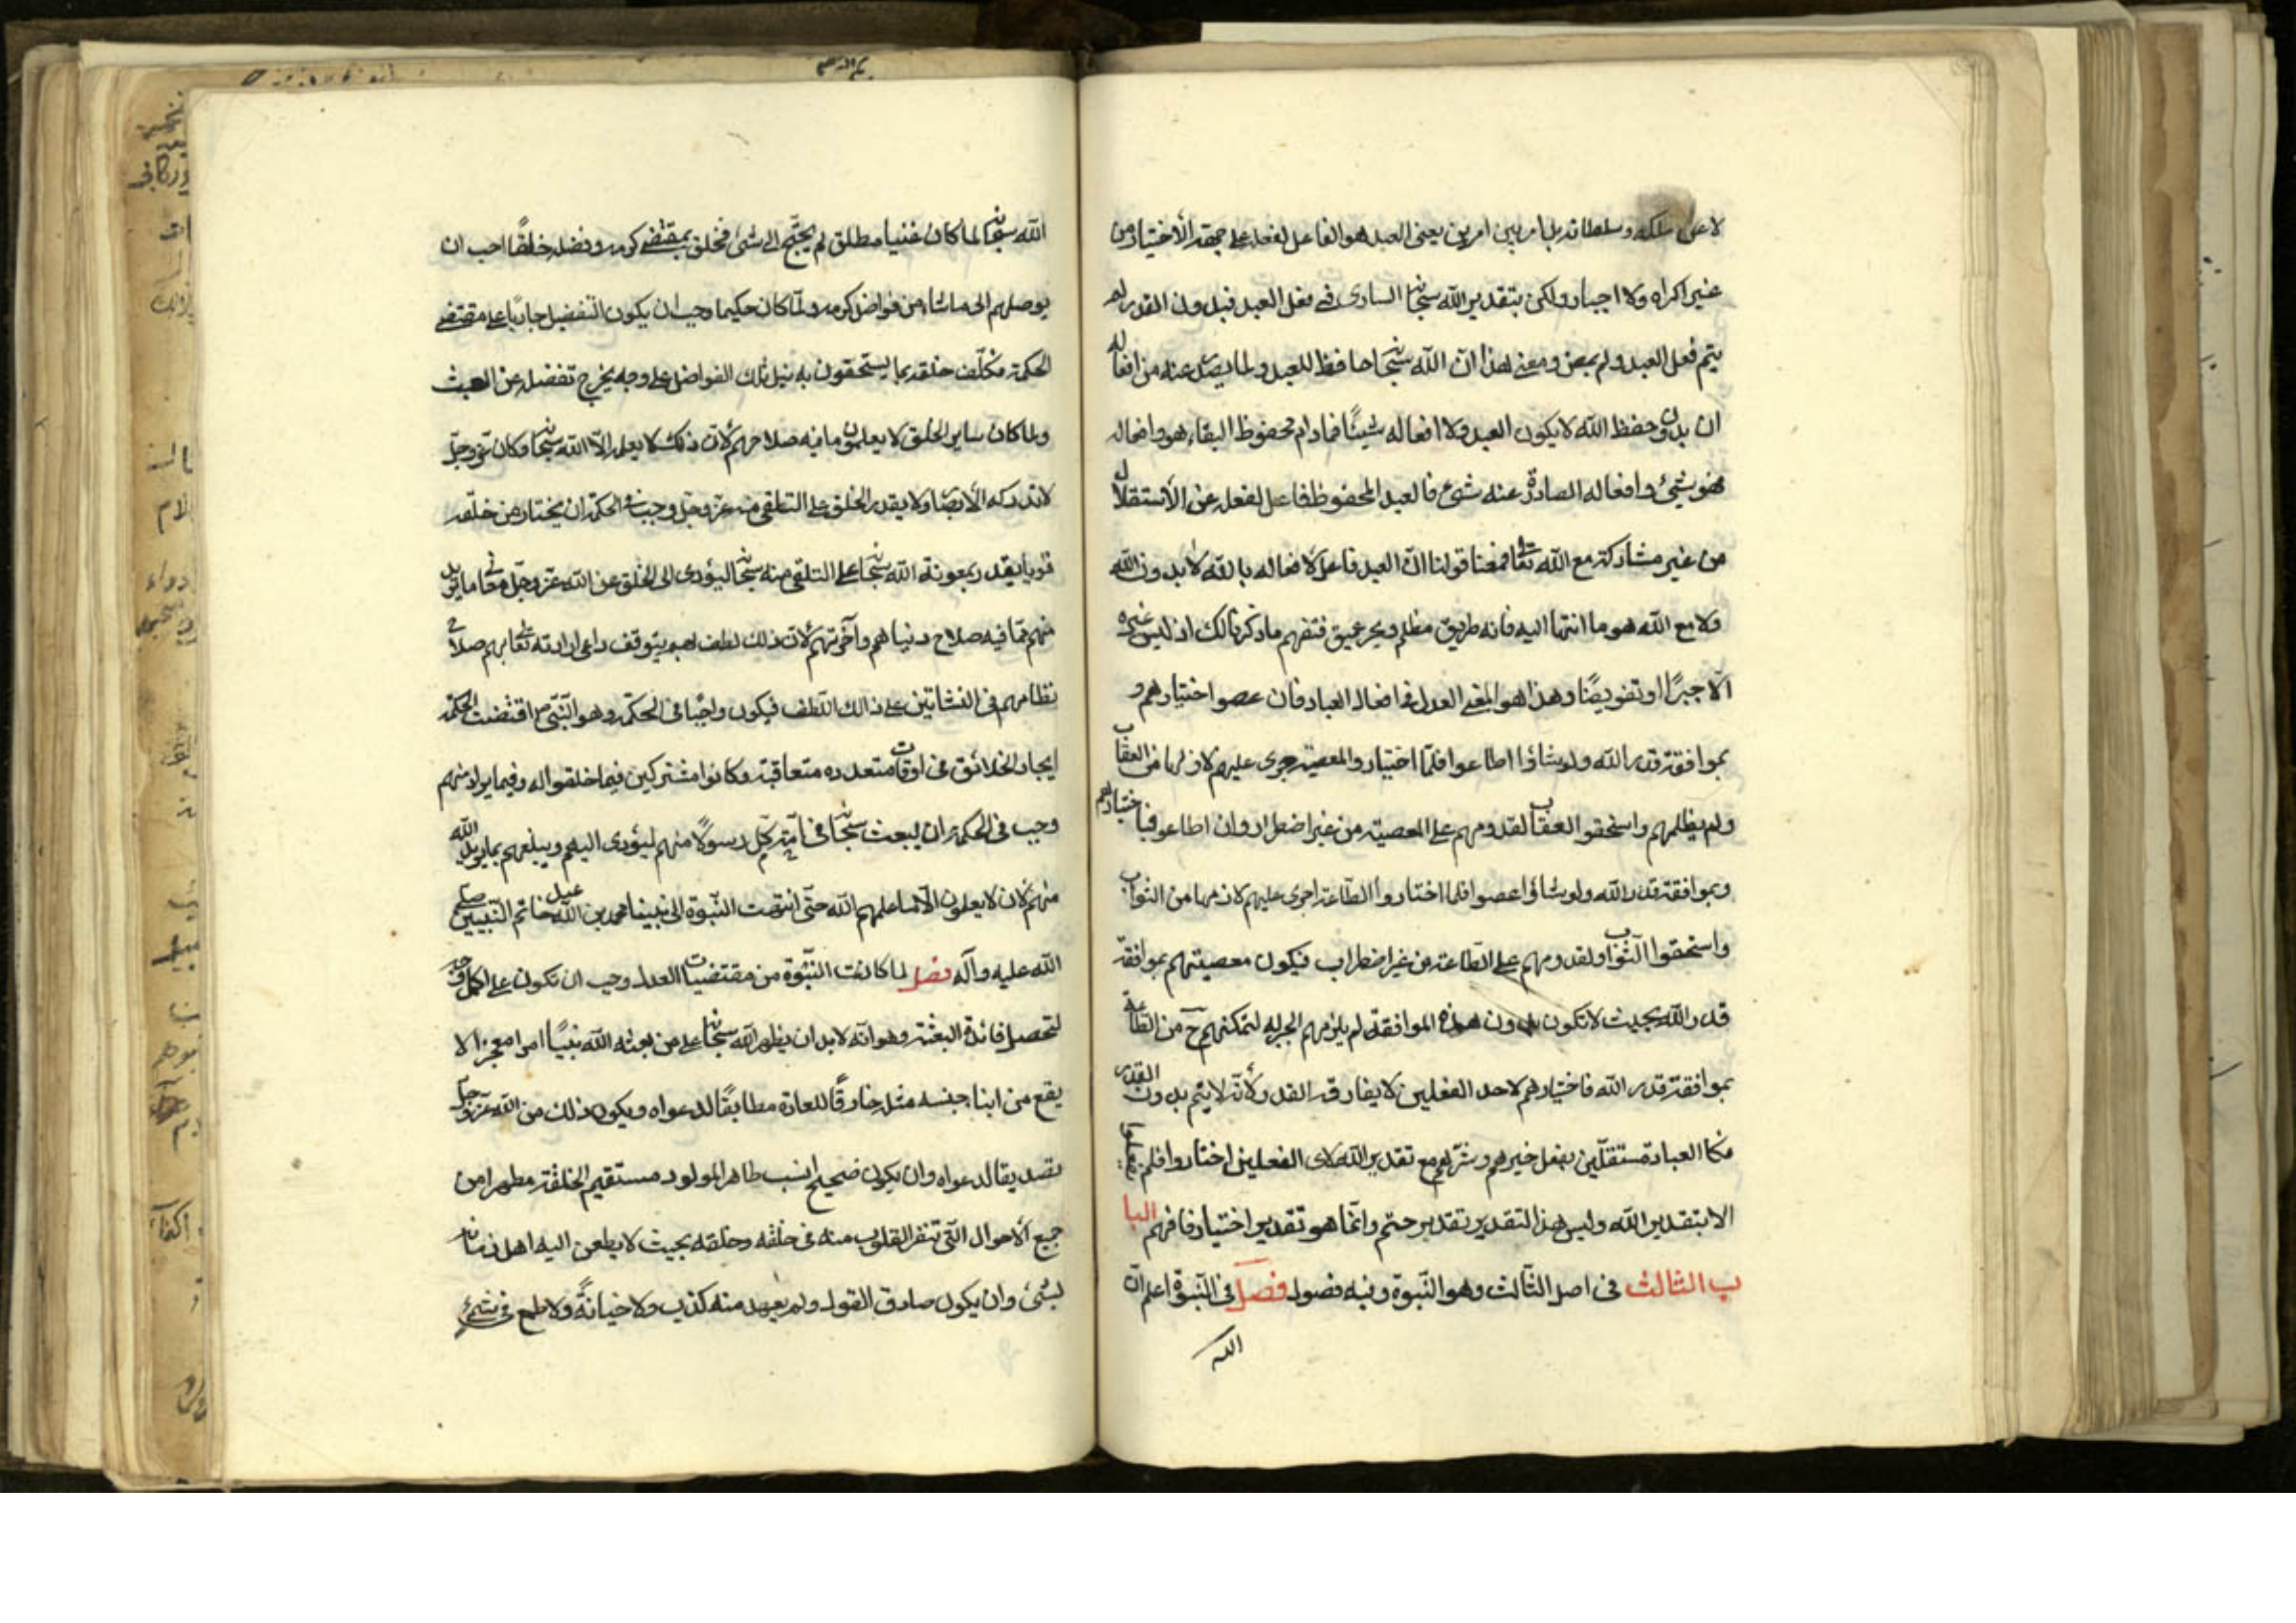 لا على ملكه وسلطانه بل امر بين امرين يعنى العبد هو الفاعل لفعله على جهة الأختيار من
غير اكراه ولا اجبار ولكن بتقدير الله سبحانه السارى فى فعل العبد فبدون القدر لم
يتم فعل العبد ولم يمض ومعنى هذا انّ الله سبحانه حافظ للعبد ولما يصدر عنه من افعاله
ان بدون حفظ الله لا يكون العبد ولا افعاله شيئًا فمادام محفوظ البقاء هو وافعاله
فهو شئ وافعاله الصادرة عنه شئ فالعبد المحفوظ فاعل لفعله عن الأستقلال
من غير مشاركة مع الله تعالى فمعنا قولنا انّ العبد فاعل لافعاله بالله لا بدون الله
ولا مع الله هو ما انتها اليه فانه طريق مظلم وبحر عميق فتفهم ما ذكرنا لك اذ ليس غيره
الّا جبرًا او تفويضًا وهذا هو المعنى العدل فى افعال العباد فان عصوا اختيارهم و
بموافقة قدر الله ولو شاؤا اطاعوا فلمّا اختياروا المعصية جرى عليهم لازمها من العقاب
ولم يظلمهم واستحقوا العقاب لقدومهم على المعصية من غير اضطرار وان اطاعوا فباختيارهم
وبموافقة قدر الله ولو شاؤا عصوا فلما اختاروا الطّاعة اجرى عليهم لازمها من الثواب
واستحقوا الثواب ولقدومهم على الطّاعة من غير اضطراب فيكون معصيتهم بموافقة
قدر الله بحيث لا تكون بدون هذه الموافقة لم يلزمهم الجبر له لتمكنهم ح من الطاعة
بموافقة قدر الله فاختيارهم لاحد الفعلين لا يفارقه القدر ولأنّه لا يتم بدون القدر
فكا العباد مستقلّين بفعل خيرهم وشرّهم مع تقدير الله لاى الفعلين اختاروا فلم يفعلوا
الا بتقدير الله وليس هذا التقدير تقدير حتم وانّما هو تقدير اختيار فافهم البا
ب الثالث فى اصل الثّالث وهو النّبوة وفيه فصول فصل فى النّبوة اعلم انّ
الله
الله سبحانه لما كان غنيا مطلق لم يحتج الى شئ فخلق بمقتضى كرمه وفضله خلقًا احب ان
يوصلهم الى ما شاء من فواضل كرمه ولمّا كان حكيما وجب ان يكون التفضيل جاريًا على مقتضى
الحكمة فكلّف خلقه بما يستحقون به نيل تلك الفواضل على وجه يخرج تفضله عن العبث
ولما كان ساير الخلق لا يعلمون ما فيه صلاحهم لأنّ ذلك لا يعلمه الّا الله سبحانه وكان عزّ وجلّ
لا تدركه الأبصار ولا يقدر الخلق على التلقى منه عزّ وجلّ وجب فى الحكمة ان يختار من خلقه
قويا يقدر بمعونة الله سبحانه على التلقى منه سبحانه ليؤدى الى الخلق عن الله عزّ وجلّ معانى ما يريد
منهم ممّا فيه صلاح دنياهم وآخرتهم لأنّ ذلك لطف بهم يتوقف داعى ارادته تعالى بهم صلاح
نظامهم فى النشاتين على ذلك اللّطف فيكون واجبًا فى الحكمة وهو النّبىّ ع اقتضت الحكمة
ايجاد الخلائق فى اوقات متعدده متعاقبة وكانوا مشتركين فيما خلقوا له وفيما يراد منهم
وجب فى الحكمة ان يبعث سبحانه فى كلّ امّة رسولًا منهم ليؤدى اليهم ويبلغهم بما يريد الله
منهم لأن لا يعلمون الّا ما علمهم الله حتّى انتهت النّبوة الى نبينا محمد بن عبد الله خاتم النّبيين صلى
الله عليه وآله فصل لما كانت النّبوة من مقتضيات العدل وجب ان تكون على اكمل وجه
لتحصل فائدة البعثة وهو انّه لابد ان يظهر الله سبحانه على من بعثه الله نبيًا امرا معجزا لا
يقع من ابنا جنسه مثله خارقًا للعادة مطابقًا لدعواه ويكون ذلك من الله عزّ وجلّ
تصديقا لدعواه وان يكون صحيح النسب طاهر المولود مستقيم الخلقة مطهرا من
جميع الأحوال الّتى تنفر القلوب منه فى خلقه وخلقه بحيث لا يطعن اليه اهل زمانه
لشئ وان يكون صادق القول ولم يعهد منه كذب ولا خيانةً ولا طمع فى شئ